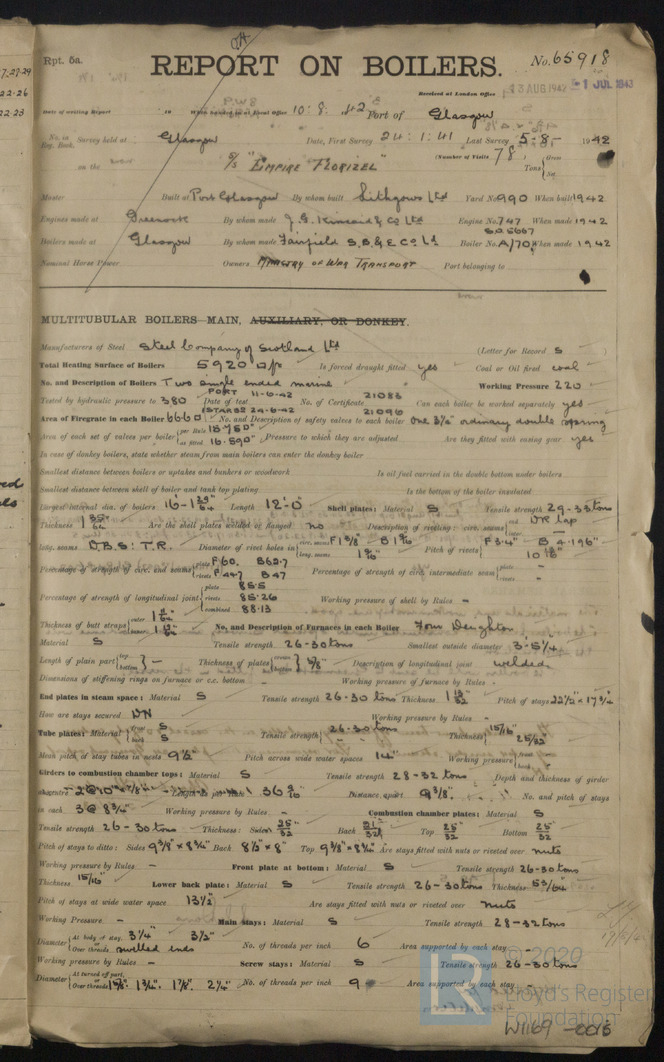 Rpt. 5a.
REPORT ON BOILERS.
No. 65918
Received at London Office 13 AUG 1942 1 JUL 1943
Date of writing Report 19 When handed in at Local Office 10.8.42 Port of Glasgow
No. in Reg. Book. Survey held at Glasgow Date, First Survey 24.1.41 Last Survey 5-8- 1942
on the S/S "EMPIRE FLORIZEL" (Number of Visits 78) Tons Gross Net
Master Built at Port Glasgow By whom built Lithgows Ltd Yard No. 990 When built 1942
Engines made at Greenock By whom made J.G. Kincaid & Co Ltd Engine No. 747 When made 1942
Boilers made at Glasgow By whom made Fairfield S.B. & E. Co Ld Boiler No. A/70 When made 1942
Nominal Horse Power Owners MINISTRY OF WAR TRANSPORT Port belonging to
MULTITUBULAR BOILERS MAIN, AUXILIARY, OR DONKEY.
Manufacturers of Steel Steel Company of Scotland Ltd (Letter for Record S
Total Heating Surface of Boilers 5920 Is forced draught fitted yes Coal or Oil fired coal
No. and Description of Boilers Two single ended marine Working Pressure 220
Tested by hydraulic pressure to 380 Date of test PORT 11-6-42 STARBD 24-6-42 No. of Certificate 21083 21096 Can each boiler be worked separately yes
Area of Firegrate in each Boiler 66.6 No. and Description of safety valves to each boiler One 3½" ordinary double spring
Area of each set of valves per boiler per Rule 15.750" as fitted 16.590" Pressure to which they are adjusted Are they fitted with easing gear yes
In case of donkey boilers, state whether steam from main boilers can enter the donkey boiler
Smallest distance between boilers or uptakes and bunkers or woodwork Is oil fuel carried in the double bottom under boilers
Smallest distance between shell of boiler and tank top plating Is the bottom of the boiler insulated
Largest internal dia. of boilers Length 12'-0" Shell plates: Material S Tensile strength 29-33 tons
Thickness Are the shell plates welded or flanged no Description of riveting: circ. seams DR lap
long. seams D.B.S: T.R. Diameter of rivet holes in circ. seams long. seams Pitch of rivets
Percentage of strength of circ. end seams plate F 60. B 62.7 rivets F 44.7 B 47 Percentage of strength of circ. intermediate seam plate - rivets -
Percentage of strength of longitudinal joint plate 85.5 rivets 85.26 combined 88.13 Working pressure of shell by Rules -
Thickness of butt straps outer inner No. and Description of Furnaces in each Boiler Four Deighton
Material S Tensile strength 26-30 tons Smallest outside diameter 3-5¼
Length of plain part top bottom - Thickness of plates crown bottom Description of longitudinal joint welded
Dimensions of stiffening rings on furnace or c.c. bottom - Working pressure of furnace by Rules -
End plates in steam space: Material S Tensile strength 26-30 tons Thickness Pitch of stays
How are stays secured DN Working pressure by Rules -
Tube plates: Material front S back S Tensile strength 26-30 tons Thickness 15/16" 25/32"
Mean pitch of stay tubes in nests 9½ Pitch across wide water spaces 14" Working pressure
Girders to combustion chamber tops: Material S Tensile strength 28-32 tons Depth and thickness of girder
Distance apart 9⅜". No. and pitch of stays
in each 3 @ 8¾" Working pressure by Rules - Combustion chamber plates: Material S
Tensile strength 26-30 tons Thickness: Sides 25/32 Back 21/32 Top 25/32 Bottom 25/32
Pitch of stays to ditto: Sides 9⅜" x 8¾" Back 8½" x 8" Top 9⅜" x 8¾" Are stays fitted with nuts or riveted over nuts
Working pressure by Rules - Front plate at bottom: Material S Tensile strength 26-30 tons
Thickness 15/16" Lower back plate: Material S Tensile strength 26-30 tons Thickness 53/64"
Pitch of stays at wide water space 13½" Are stays fitted with nuts or riveted over nuts
Working Pressure - Main stays: Material S Tensile strength 28-32 tons
Diameter At body of stay, 3¼" 3½" Over threads swelled ends No. of threads per inch 6 Area supported by each stay -
Working pressure by Rules - Screw stays: Material S Tensile strength 26-30 tons
Diameter At turned off part, Over threads 1⅝" 1¾" 1⅞" 2¼" No. of threads per inch 9 Area supported by each stay -
© 2020
Lloyd's Register
Foundation
W1169-0015